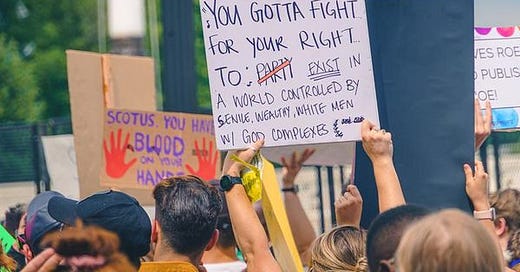 ♪YOU GOTTA FIGHT
FOR YOUR RIGHT
TO: PARTY EXIST IN
A WORLD CONTROLLED BY
SENILE, WEALTHY, WHITE MEN
W/ GOD COMPLEXES
SCOTUS. YOU HAVE
BLOOD
ON YOUR
HANDS
VES ROE
D PUBLIS
OE!